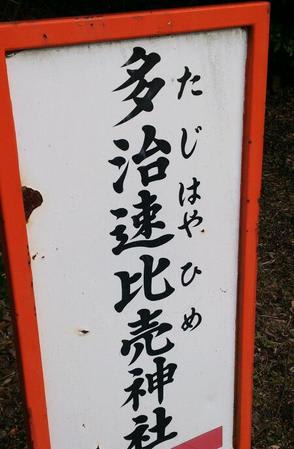 多治速比売神社
たじはやひめ